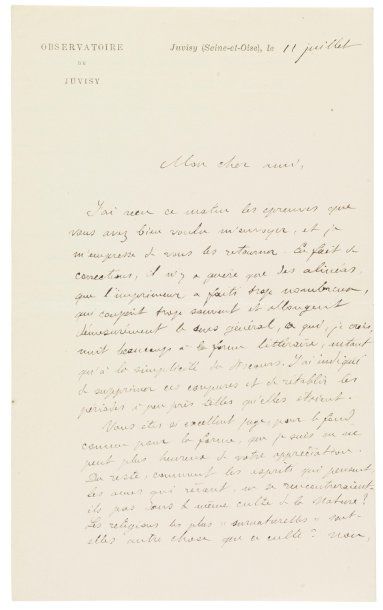 OBSERVATOIRE
DE
JUVISY
Juvisy (Seine-et-Oise), le 11 juillet
Mon cher ami,
J'ai reçu ce matin les épreuves que
vous avez bien voulu m'envoyer, et je
m'empresse de vous les retourner. En fait de
corrections, il n'y a guère que des alinéas,
que l'imprimeur a faits trop nombreux,
qui coupent trop souvent et allongent
démesurément le sens général, ce qui, je crois,
nuit beaucoup à la forme littéraire, autant
qu'à la simplicité du discours. J'ai indiqué
de supprimer ces coupures et de rétablir les
périodes à peu près telles qu'elles étaient.
Vous êtes si excellent juge, pour le fond
comme pour la forme, que je suis on ne
peut plus heureux de votre appréciation.
Du reste, comment les esprits qui pensent,
les âmes qui rêvent, ne se rencontreraient-
ils pas dans le même culte de la Nature?
Les religions les plus "surnaturelles" sont-
elles autre chose que ce culte? Non,